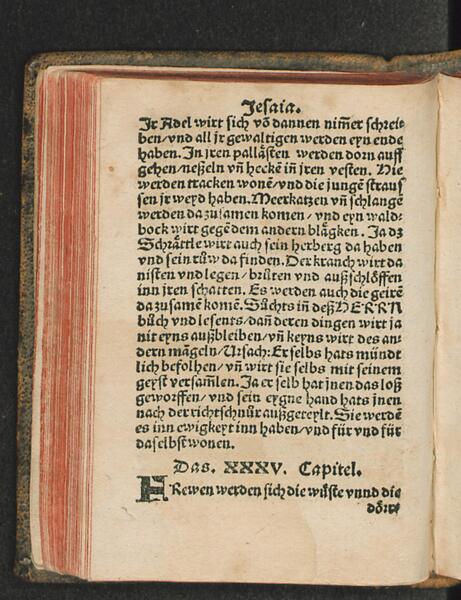 Jesaia.
Jr Adel wirt sich võ dannen nim̃er schrei⸗
ben/vnd all jr gewaltigen werden eyn ende
haben. In jren pallästen werden dorn auff
gehen/neßeln vñ hecke iñ jren vesten. Hie
werden tracken wonẽ/vnd die jungẽ strauſ
sen jr weyd haben. Meerkatzen vñ schlangẽ
werden da zusamen komen/vnd eyn wald⸗
bock wirt gegẽ dem andern blägken. Ja dz
Schrättle wirt auch sein herberg da haben
vnd sein růw da finden. Der kranch wirt da
nisten vnd legen/brůten vnd außschlöffen
inn jren schatten. Es werden auch die geirẽ
da zusamẽ komẽ. Sůchts iñ deß HERRN
bůch vnd lesents/dañ deren dingen wirt ja
nit eyns außbleiben/vñ keyns wirt des an⸗
dern mãgeln/Vrsach: Er selbs hats můndt
lich befolhen/vñ wirt sie selbs mit seinem
geyst versam̃len. Ja er selb hat jnen das loß
geworffen/vnd sein eygne hand hats jnen
nach der richtschnůr außgereylt. Sie werdẽ
es inn ewigkeyt inn haben/vnd für vnd für
daselbst wonen.
Das. XXXV. Capitel.
FRewen werden sich die wůste vnnd die
dörre